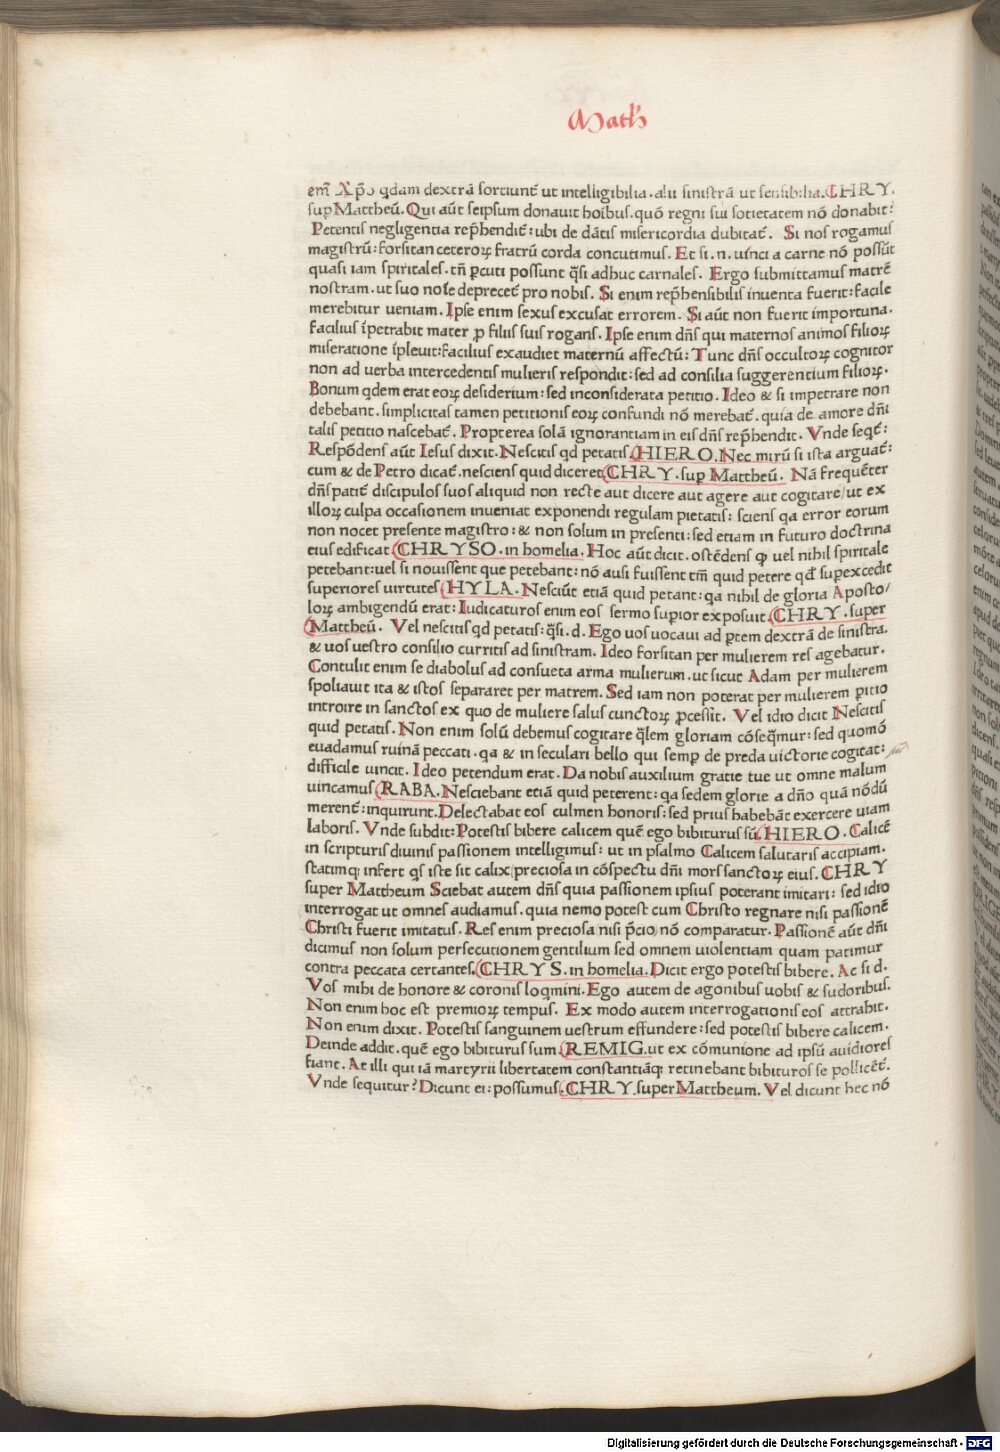 Math
em̄ Xp̄o qdam dextrā sortiunt̄ ut intelligibilia. alii sinistrā ut sensibilia. CHRY.
sup Mattheū. Qui aūt seipsum donauit hoi̅bus. quō regni sui societatem nō donabit?
Petentis negligentia rep̄hendit̄: ubi de dātis misericordia dubitat̄. Si nos rogamus
magistrū: forsitan ceteroꝝ fratrū corda concutimus. Et si. n. uinci a carne nō possūt
quasi iam spiritales. tn̄ pcuti possunt q̄si adhuc carnales. Ergo submittamus matrē
nostram. ut suo noi̅e deprecet̄ pro nobis. Si enim rep̄hensibilis inuenta fuerit: facile
merebitur ueniam. Ipse enim sexus excusat errorem. Si aūt non fuerit importuna.
facilius i̅petrabit mater ꝓ filiis suis rogans. Ipse enim dn̄s qui maternos animos filioꝝ
miseratione i̅pleuit: facilius exaudiet maternū affectū: Tunc dn̄s occultoꝝ cognitor
non ad uerba intercedentis mulieris respondit: sed ad consilia suggerentium filioꝝ.
Bonum qdem erat eoꝝ desiderium: sed inconsiderata petitio. Ideo & si impetrare non
debebant. simplicitas tamen petitionis eoꝝ confundi nō merebat̄. quia de amore dn̄i
talis petitio nascebat̄. Propterea solā ignorantiam in eis dn̄s rep̄hendit. Vnde seqt̄:
Respōdens aūt Iesus dixit. Nescitis qd petatis. HIERO. Nec mirū si ista arguat̄:
cum & de Petro dicat̄. nesciens quid diceret CHRY. sup Mattheū. Nā frequēter
dn̄s patit̄ discipulos suos aliquid non recte aut dicere aut agere aut cogitare/ut ex
illoꝝ culpa occasionem inueniat exponendi regulam pietatis: sciens qa error eorum
non nocet presente magistro: & non solum in presenti: sed etiam in futuro doctrina
eius edificat CHRYSO. in homelia. Hoc aūt dicit. ostēdens ꝙ uel nihil spiritale
petebant: uel si nouissent que petebant: nō ausi fuissent tm̄ quid petere qd̄ supexcedit
superiores uirtutes HYLA. Nesciūt etiā quid petant: qa nihil de gloria Aposto/
loꝝ ambigendū erat: Iudicaturos enim eos sermo supior exposuit CHRY. super
Mattheū. Vel nescitis qd petatis: q̄si. d. Ego uos uocaui ad ptem dextrā de sinistra.
& uos uestro consilio curritis ad sinistram. Ideo forsitan per mulierem res agebatur.
Contulit enim se diabolus ad consueta arma mulierum. ut sicut Adam per mulierem
spoliauit ita & istos separaret per matrem. Sed iam non poterat per mulierem pitio
introire in sanctos ex quo de muliere salus cunctoꝝ pcessit. Vel idio dicit Nescitis
quid petatis. Non enim solū debemus cogitare q̄lem gloriam cōseq̄mur: sed quomō
euadamus ruinā peccati. qa & in seculari bello qui semp de preda uictorie cogitat:
difficile uincit. Ideo petendum erat. Da nobis auxilium gratie tue ut omne malum
uincamus RABA. Nesciebant etiā quid peterent: qa sedem glorie a dn̄o quā nōdū
merent̄: inquirunt. Delectabat eos culmen honoris: sed prius habebāt exercere uiam
laboris. Vnde subdit: Potestis bibere calicem quē ego bibiturus sū HIERO. Calicē
in scripturis diuinis passionem intelligimus: ut in psalmo Calicem salutaris accipiam.
statimq; infert qs iste sit calix/preciosa in cōspectu dn̄i mors sanctoꝝ eius. CHRY
super Mattheum Sciebat autem dn̄s quia passionem ipsius poterant imitari: sed idio
interrogat ut omnes audiamus. quia nemo potest cum Christo regnare nisi passionē
Christi fuerit imitatus. Res enim preciosa nisi p̄cio nō comparatur. Passionē aūt dn̄i
dicimus non solum persecutionem gentilium sed omnem uiolentiam quam patimur
contra peccata certantes. CHRYS. in homelia. Dicit ergo potestis bibere. Ac si d.
Vos mihi de honore & coronis loqmini. Ego autem de agonibus uobis & sudoribus.
Non enim hoc est premioꝝ tempus. Ex modo autem interrogationis eos attrahit.
Non enim dixit. Potestis sanguinem uestrum effundere: sed potestis bibere calicem.
Deinde addit. quē ego bibiturus sum. REMIG. ut ex cōmunione ad ipsū auidiores
fiant. At illi qui iā martyrii libertatem constantiāq; retinebant bibituros se pollicēt̄.
Vnde sequitur? Dicunt ei: possumus. CHRY. super Mattheum. Vel dicunt hec nō
Digitalisierung gefördert durch die Deutsche Forschungsgemeinschaft - DFG